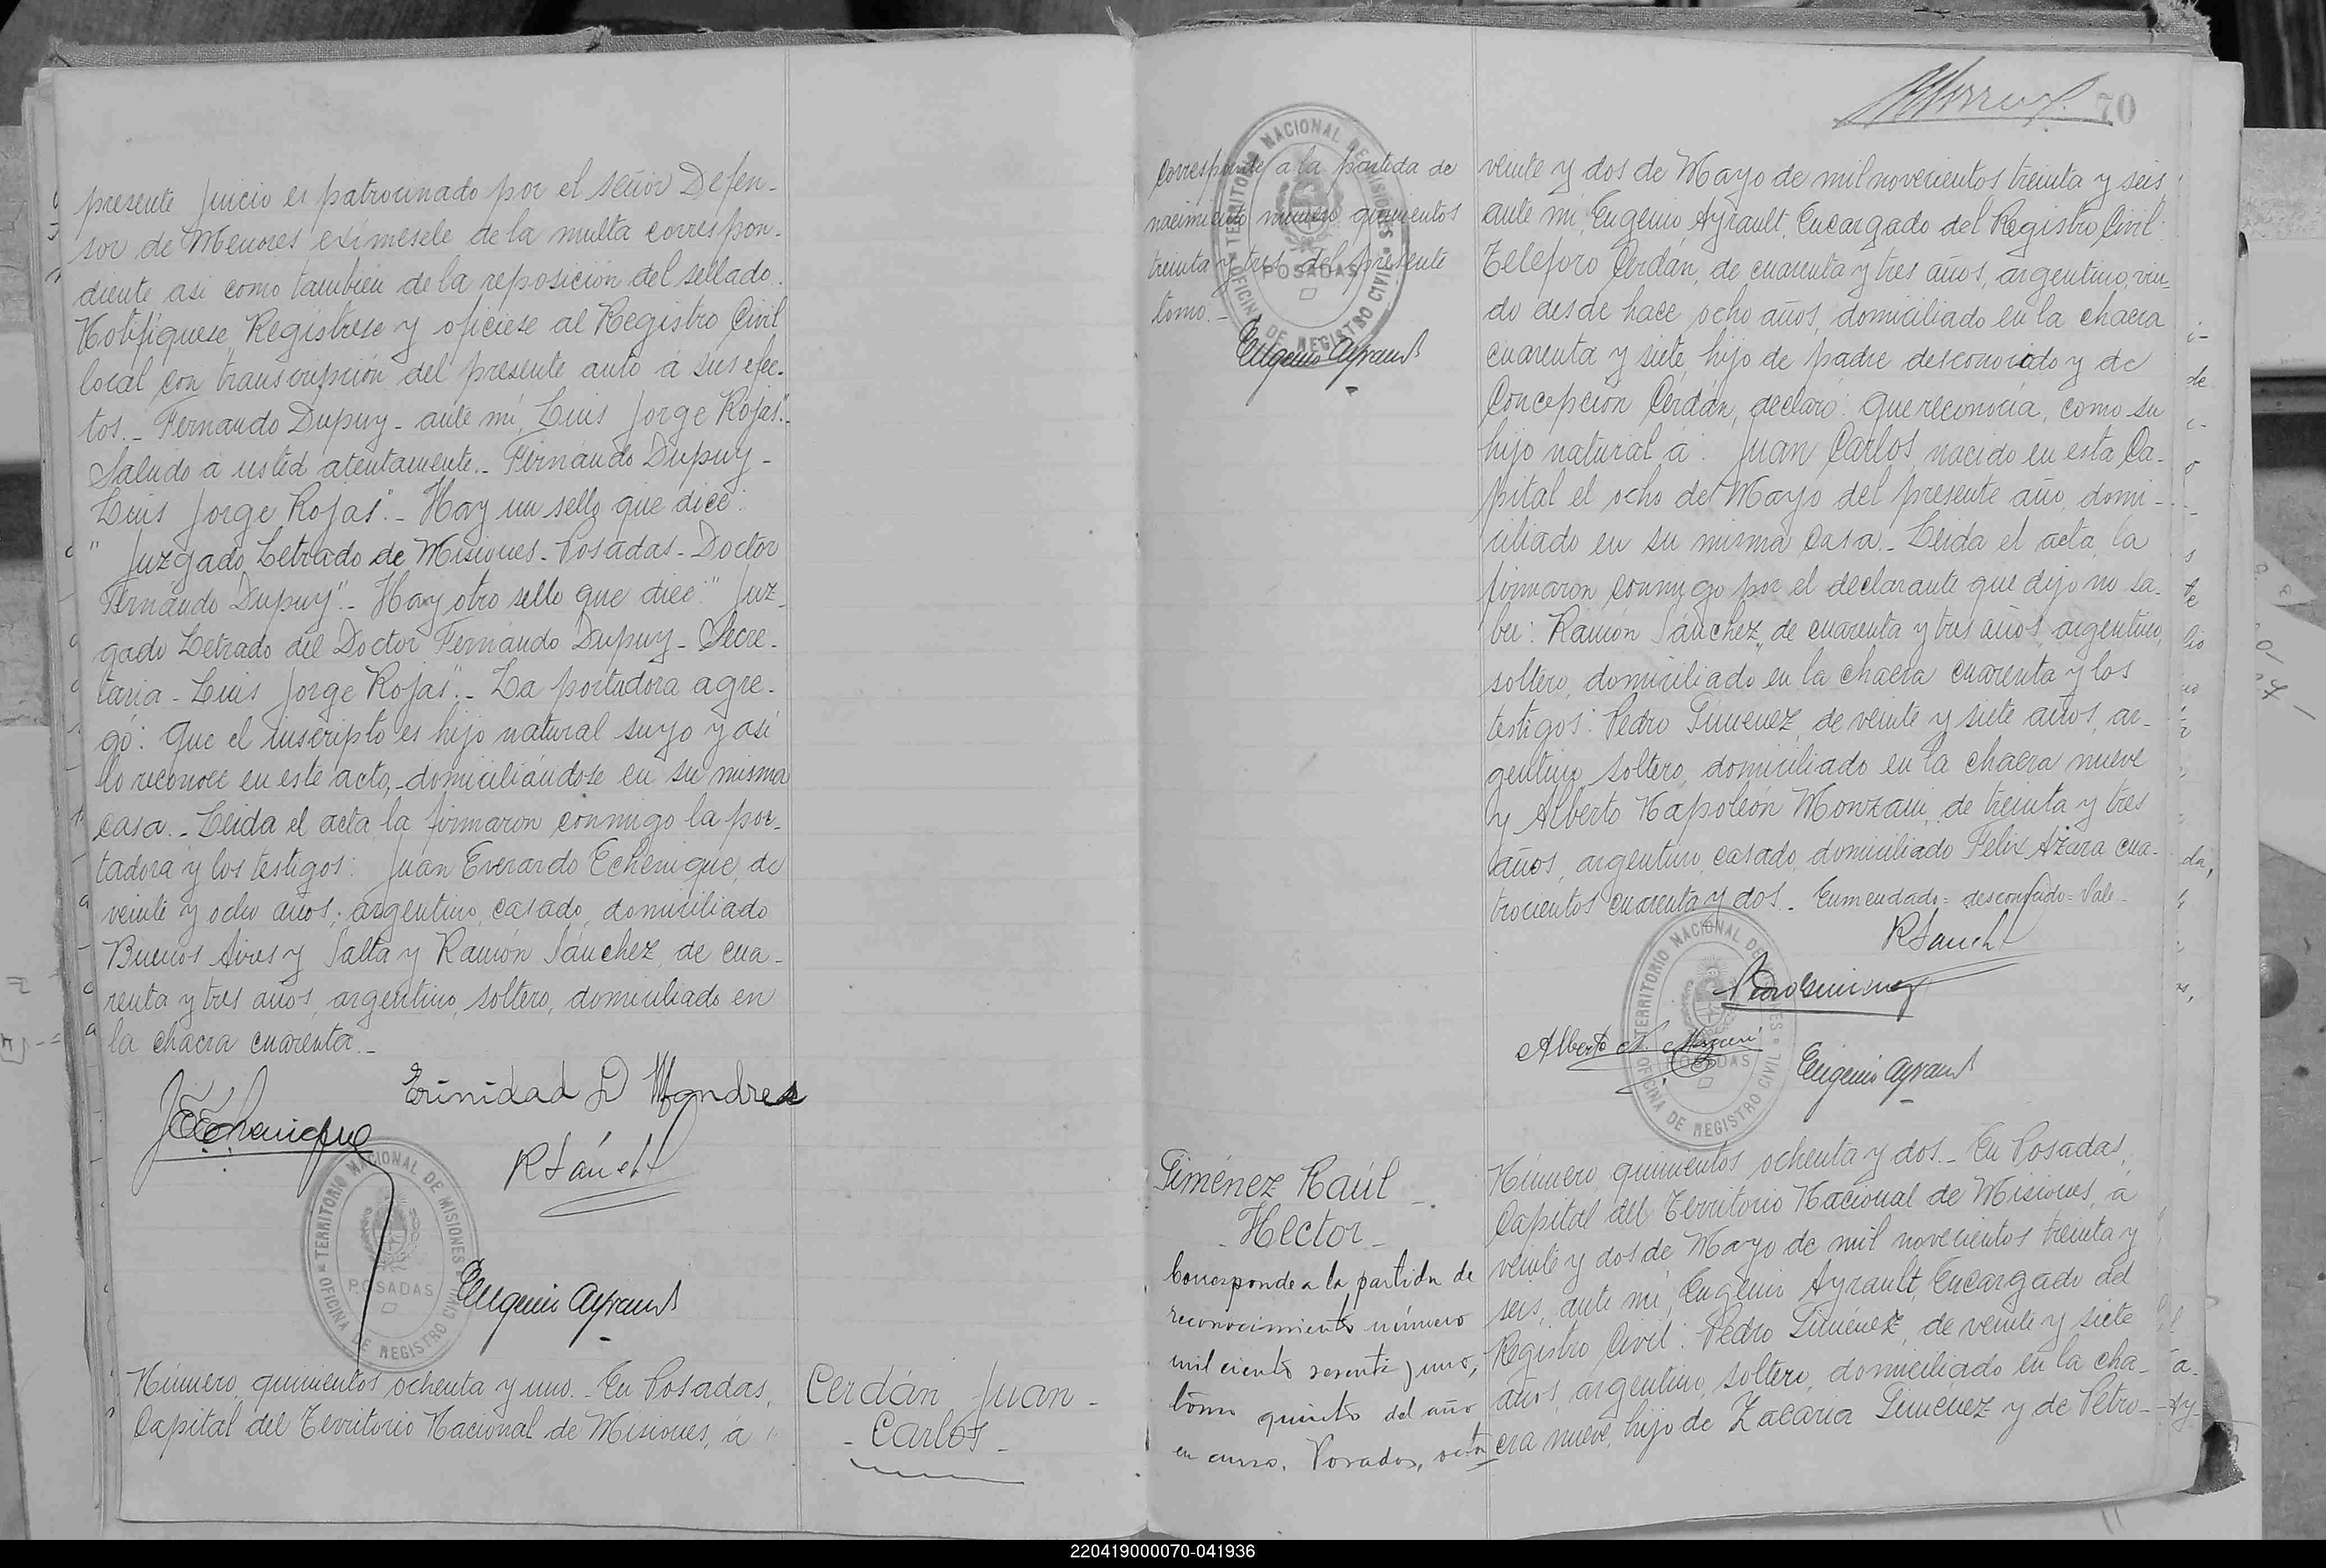 presente juicio es patrocinado por el señor Defen-
sor de Menores exímesele de la multa correspon-
diente asi como también de la reposición del sellado.
Notifíquese, Regístrese y ofíciese al Registro Civil
local con transcripción del presente auto á sus efec-
tos._ Fernando Dupuy_ ante mí, Luis Jorge Rojas"._
Saludo á usted atentamente._ Fernando Dupuy_
Luis Jorge Rojas"._ Hay un sello que dice:
" Juzgado Letrado de Misiones_ Posadas_ Doctor
Fernando Dupuy"._ Hay otro sello que dice:" Juz_
gado Letrado del Doctor Fernando Dupuy_ Secre_
taria_ Luis Jorge Rojas"._ La portadora agre_
gó: Que el inscripto es hijo natural suyo y así
lo reconoce en este acto, domiciliándose en su misma
casa._ Leida el acta, la firmaron conmigo la por_
tadora y los testigos: Juan Everardo Echenique, de
veinte y ocho años, argentino, casado, domiciliado
Buenos Aires y Salta y Ramón Sánchez, de cua_
renta y tres años, argentino, soltero, domiciliado en
la chacra cuarenta._
Trinidad D
R Sánch
TERRITORIO NACIONAL DE MISIONES
POSADAS
OFICINA DE REGISTRO CIVIL
Eugenio Ayrault
Número quinientos ochenta y uno._ En Posadas,
Capital del Territorio Nacional de Misiones, á
Cerdán Juan_
_Carlos_
70
Corresponde a la partida de
nacimiento número quinientos
treinta y tres del presente
tomo._
TERRITORIO NACIONAL DE MISIONES
POSADAS
OFICINA DE REGISTRO CIVIL
Eugenio Ayrault
veinte y dos de Mayo de mil novecientos treinta y seis
ante mi, Eugenio Ayrault, Encargado del Registro Civil:
Teleforo Cerdán, de cuarenta y tres años, argentino, viu_
do desde hace ocho años, domiciliado en la chacra
cuarenta y siete, hijo de padre desconocido y de
Concepcion Cerdán, declaró: Que reconocía, como su
hijo natural á: Juan Carlos, nacido en esta Ca_
pital el ocho de Mayo del presente año, domi_
ciliado en su misma casa._ Leida el acta, la
firmaron conmigo por el declarante que dijo no sa_
ber: Ramón Sánchez, de cuarenta y tres años, argentino,
soltero, domiciliado en la chacra cuarenta y los
testigos: Pedro Gimenez, de veinte y siete años, ar_
gentino, soltero, domiciliado en la chacra nueve
y Alberto Napoleón Monzani, de treinta y tres
años, argentino, casado, domiciliado Felix Azara cua_
trocientos cuarenta y dos._ Enmendado= desconocido= Vale_
R Sánch
Pedro Gimenez
Alberto N.
Eugenio Ayrault
TERRITORIO NACIONAL DE MISIONES
POSADAS
OFICINA DE REGISTRO CIVIL
Giménez Raúl_
_Hector_
Corresponde a la partida de
reconocimiento número
mil ciento sesenta y uno,
tomo quinto del año
en curso. Posadas,
Número quinientos ochenta y dos._ En Posadas,
Capital del Territorio Nacional de Misiones, á
veinte y dos de Mayo de mil novecientos treinta y
seis, ante mi, Eugenio Ayrault, Encargado del
Registro Civil: Pedro Giménez, de veinte y siete
años, argentino, soltero, domiciliado en la cha_
cra nueve, hijo de Zacaria Giménez y de Petro_
220419000070-041936